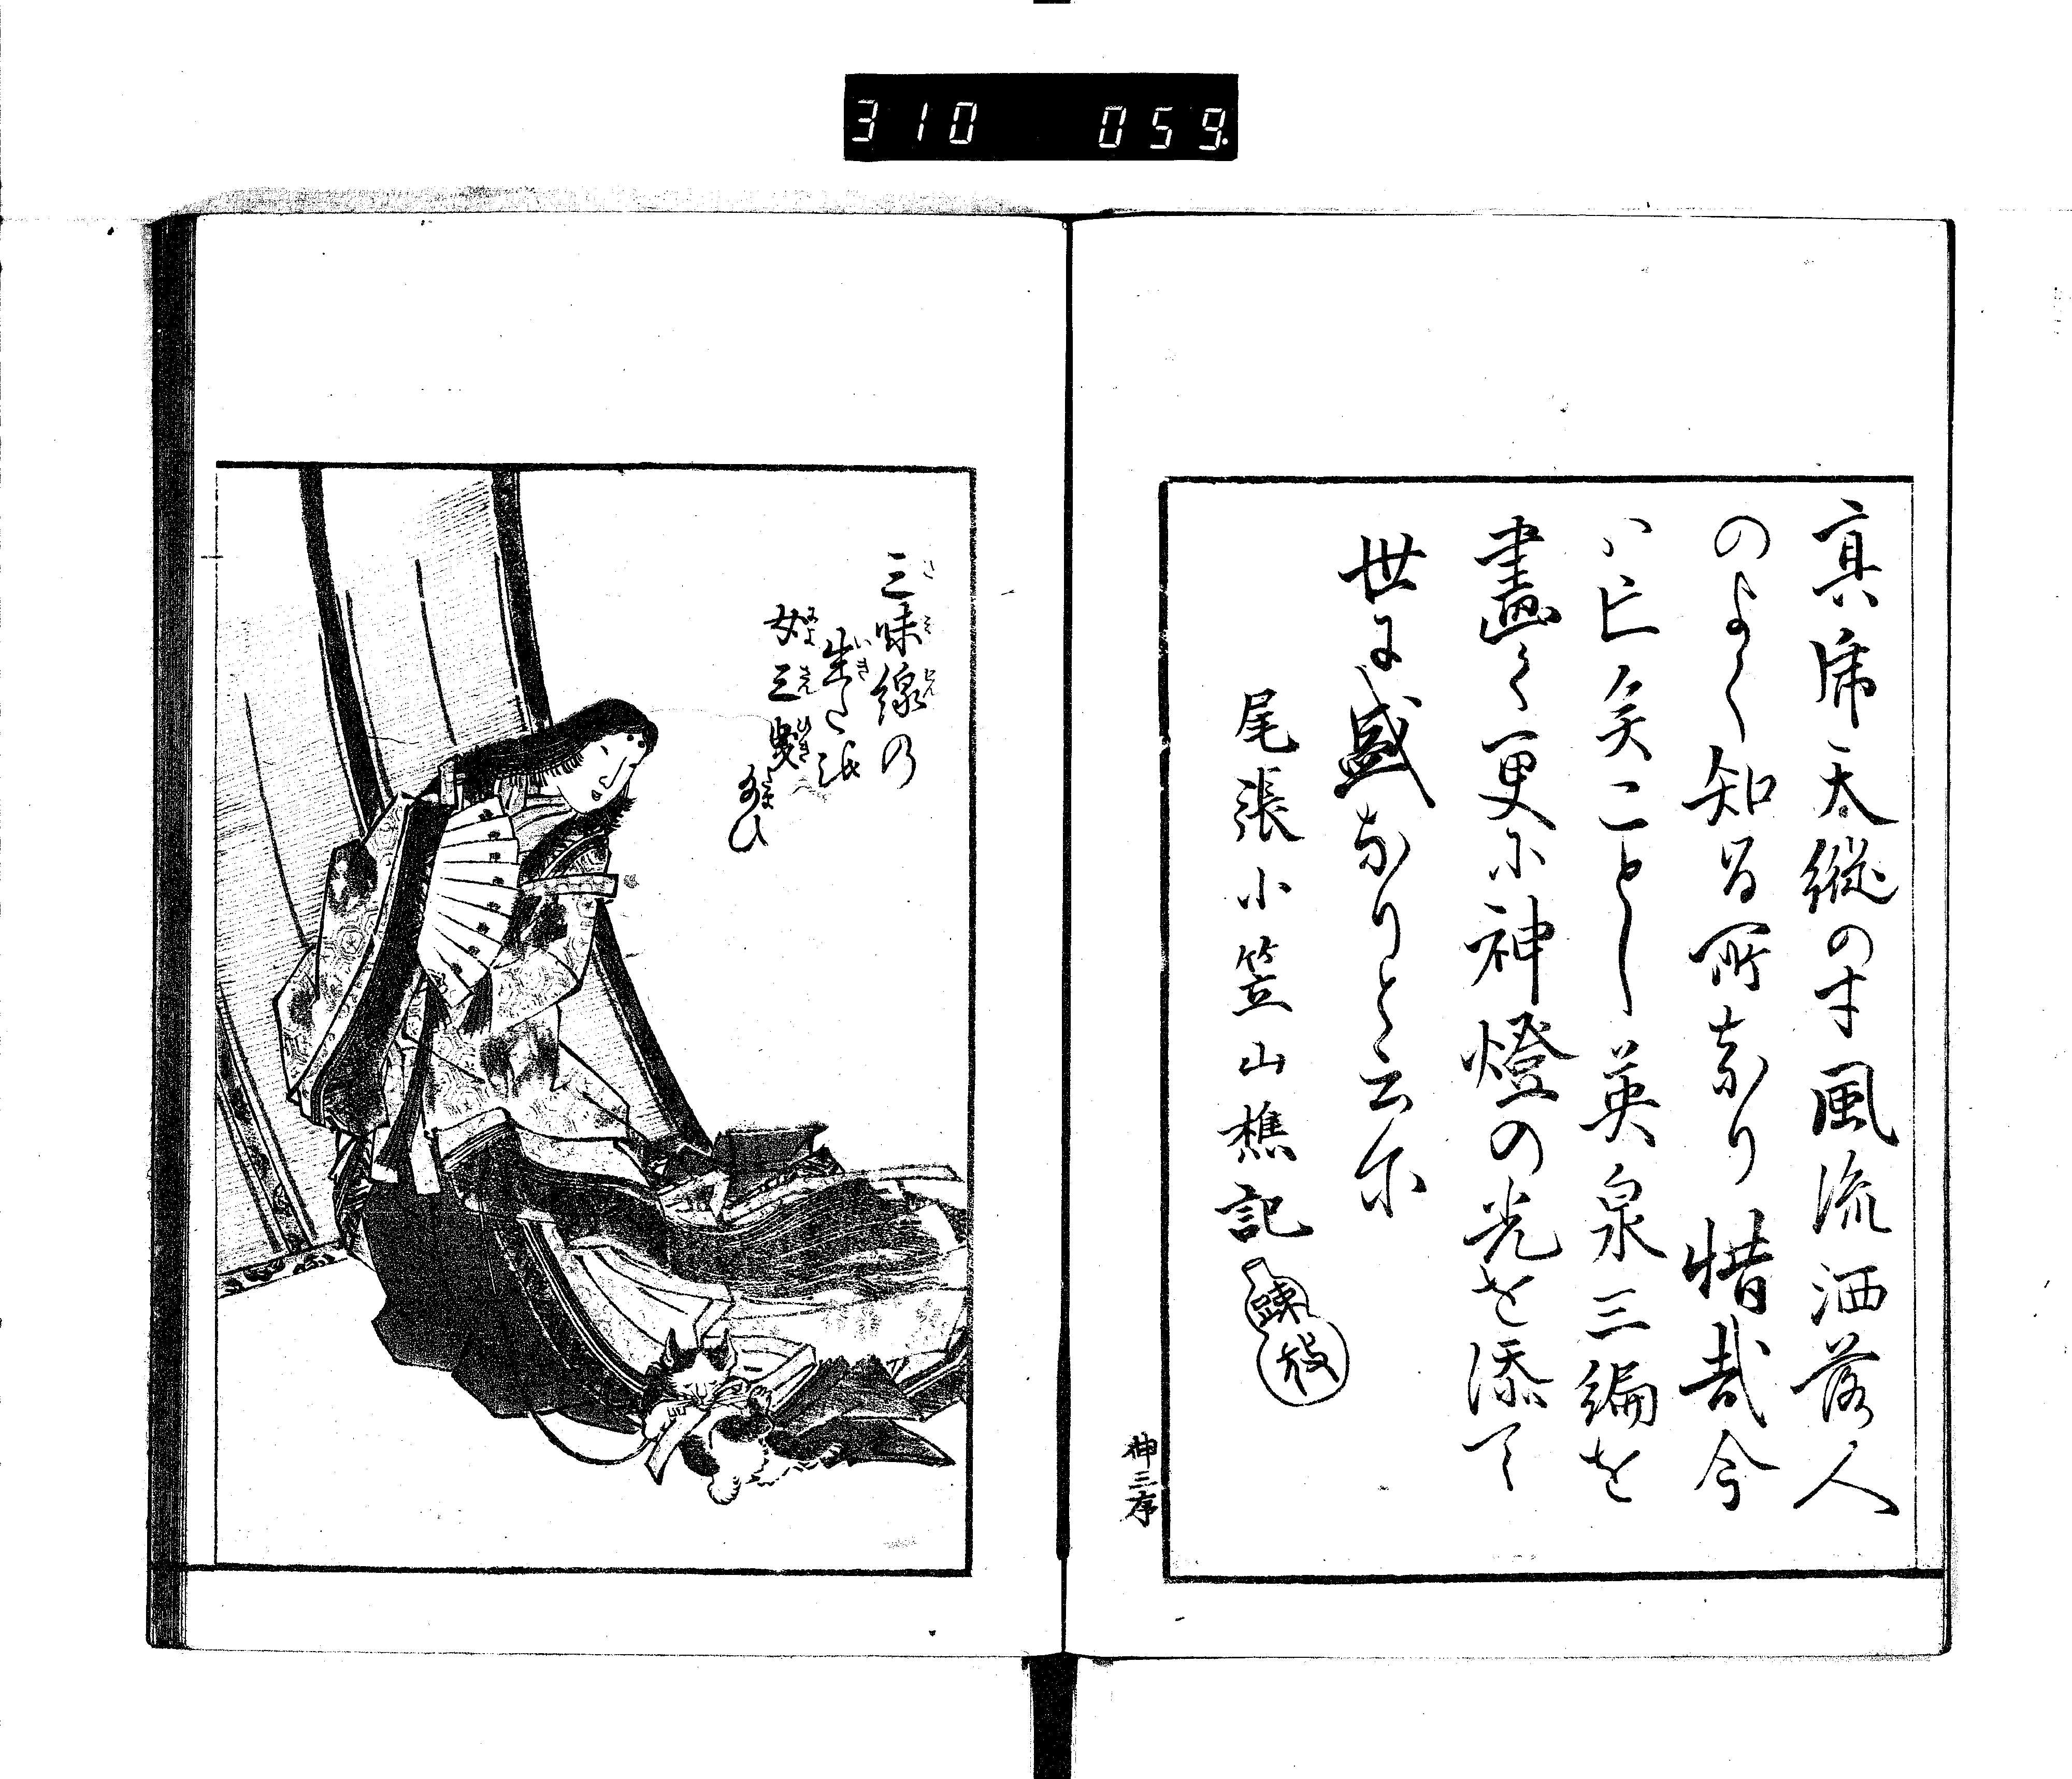 310 059
真席天縦の才風流洒落人
のよく知る所なり惜哉今
ハ亡矣ことし英泉三編を
畫く更に神燈の光を添て
世に盛なりと云尓
尾張小笠山樵記
疎放
神三序
三味線の
生た
女三